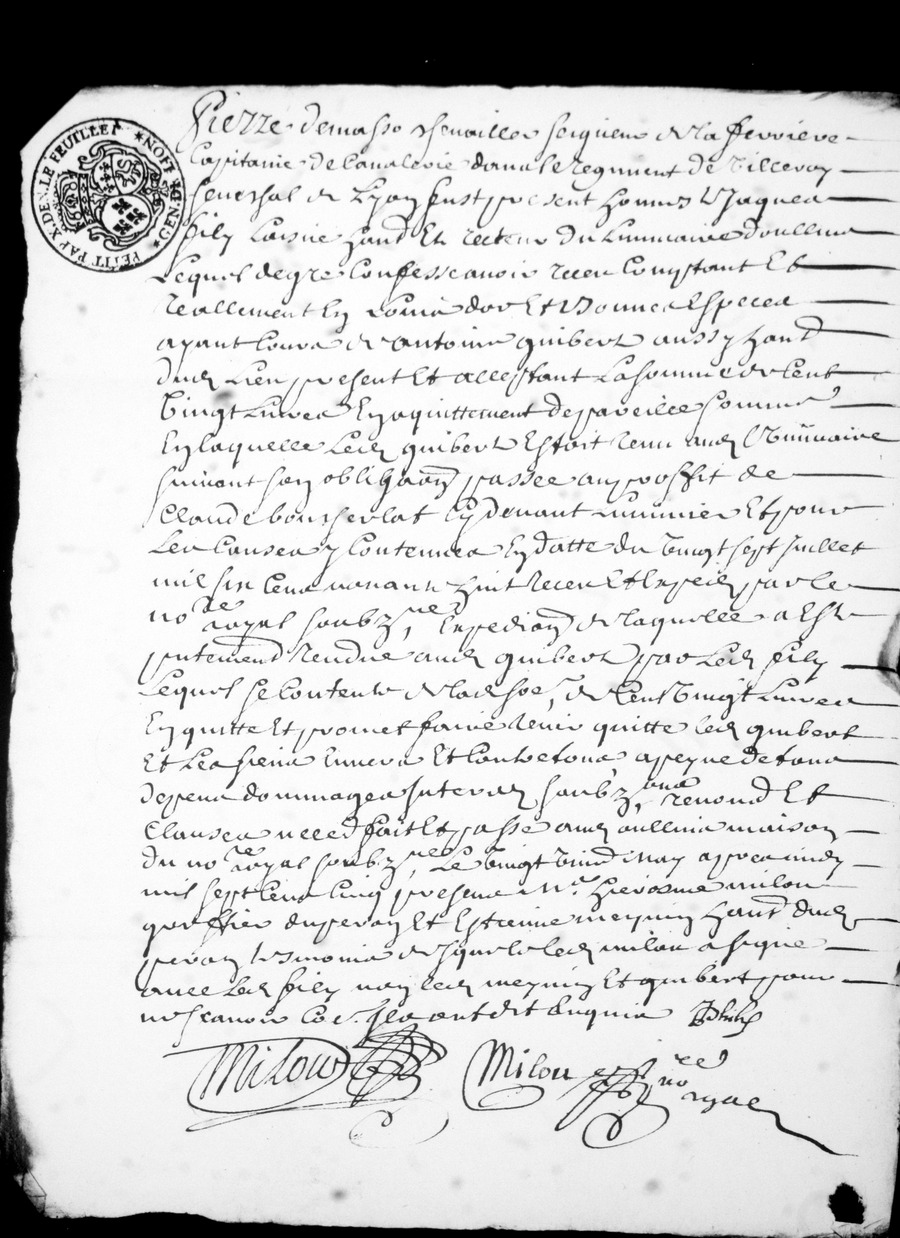 PETIT PAP. X. DEN. LE FEUILLET * GEN. DE LION *
Pierre demasso chevallier seigneur de la ferriere
Capitaine de Cavalerie dans le Regiment de Villeroy
seneschal de Lyon fust present honneste Jaques
fily laisne habt et recteur du luminaire doullins
Lequel de gre confesse avoir receu Comptant et
reallement en Louis dor et bonnes especes
ayant cours de antoine guibert aussy habt
dud lieu present et acceptant la somme de cent
vingt livres en aquittement de pareille somme
en laquelle led guibert estoit tenu aud luminaire
suivant son obligaon passee au proffit de
Claude boucherlat cydevant luminier et pour
les causes y contenues en datte du vingt sept Juillet
mil six cens nonante huit receu et expedie par le
nore royal soubzne, expedion de laquelle a este
pntement rendue aud guibert par led fily
Lequel se contente de lad soe, de cent vingt livres
en quitte et promet faire tenir quitte led guibert
et les siens envers et contre tous a peyne de tous
despens dommages interests soubz, renond et
clauses necesd fait et passe aud oullins maison
du nore royal soubzne, le vingt May apres midy
mil sept cens cinq presens Mr. hierosme milou
greffier du peron et estienne meynin habt dud
peron tesmoins desquels led milou a signe
avec led fily non led meynin et guibert pour
ne scavoir Co. Ils ont dit enquis J fily
Milou Milou nore royal